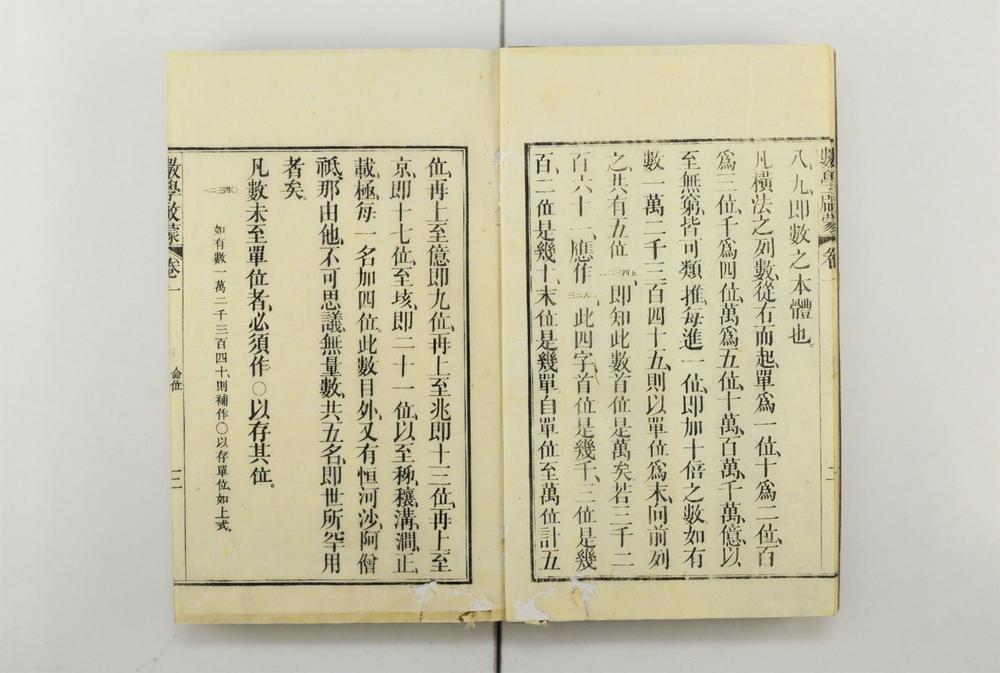 數學啟蒙 卷一 二
八、九、即數之本體也。
凡橫法之列數、從右而起、單爲一位、十爲二位、百
爲三位、千爲四位、萬爲五位、十萬、百萬、千萬、億、以
至無窮、皆可類推、每進一位、即加十倍之數、如有
數一萬二千三百四十五、則以單位爲末、向前列
之、共有五位、一二三四五、即知此數首位是萬矣、若三千二
百六十一、應作三二六一、此四字首位是幾千、二位是幾
百、二位是幾十、末位是幾單、自單位至萬位計五
位、再上至億、即九位、再上至兆、即十三位、再上至
京、即十七位、至垓、即二十一位、以至秭、穰、溝、澗、正、
載、極、每一名加四位。此數目外、又有恒河沙、阿僧
祗、那由他、不可思議、無量數、共五名、即世所罕用
者矣。
凡數未至單位者、必須作〇以存其位。
如有數一萬二千三百四十、則補作〇以存單位、如上式。
一二三四〇
數學啟蒙 卷一 論位 三